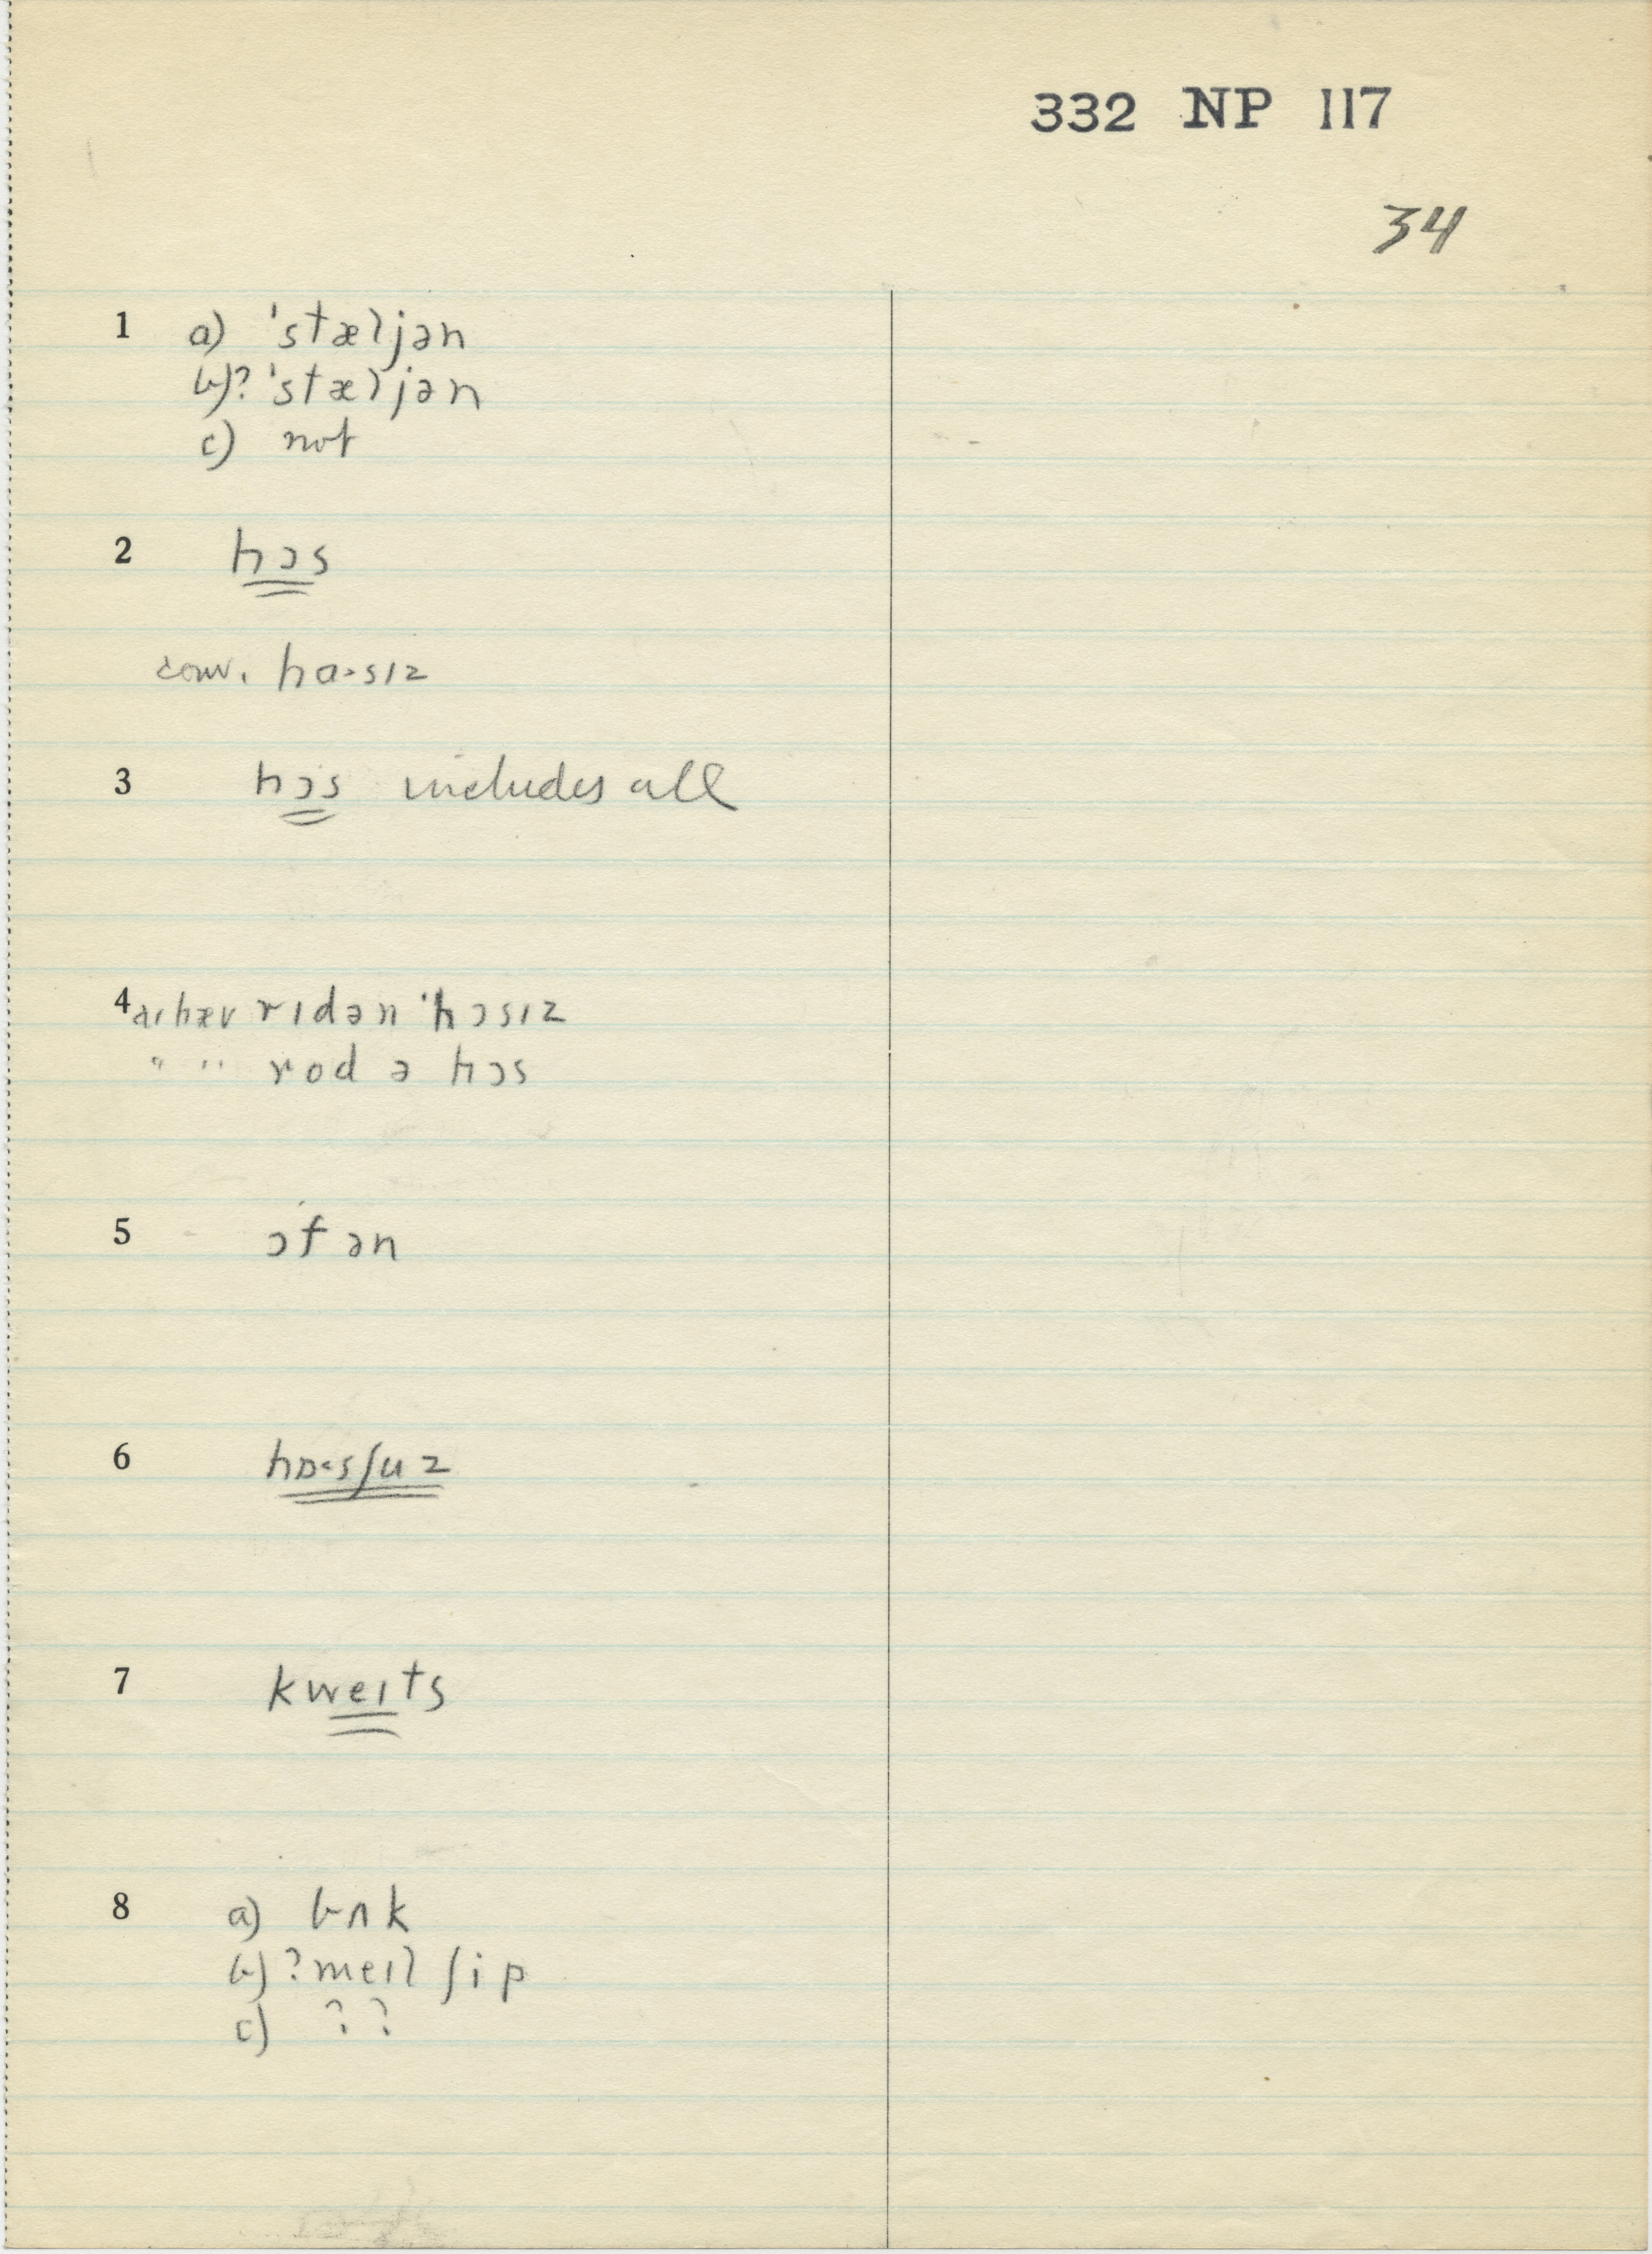 332 NP 117
34
1 a) 'stæljən
b)? 'stæljən
c) not
2 hɔs
conv. hɑ·sɪz
3 hɔs includes all
4 aɪ hæv rɪdən 'hɔsɪz
" " rod ə hɔs
5 ɔfən
6 hɒ·sʃuz
7 kweɪts
8 a) bʌk
b) ? meɪl ʃip
c) ? ?